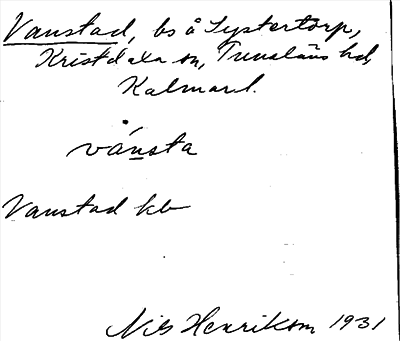 Vanstad, bs å Systertorp,
Kristdala sn, Tunaläns hd,
Kalmarl.
vánsta
Vanstad kb
Nils Henrikson 1931